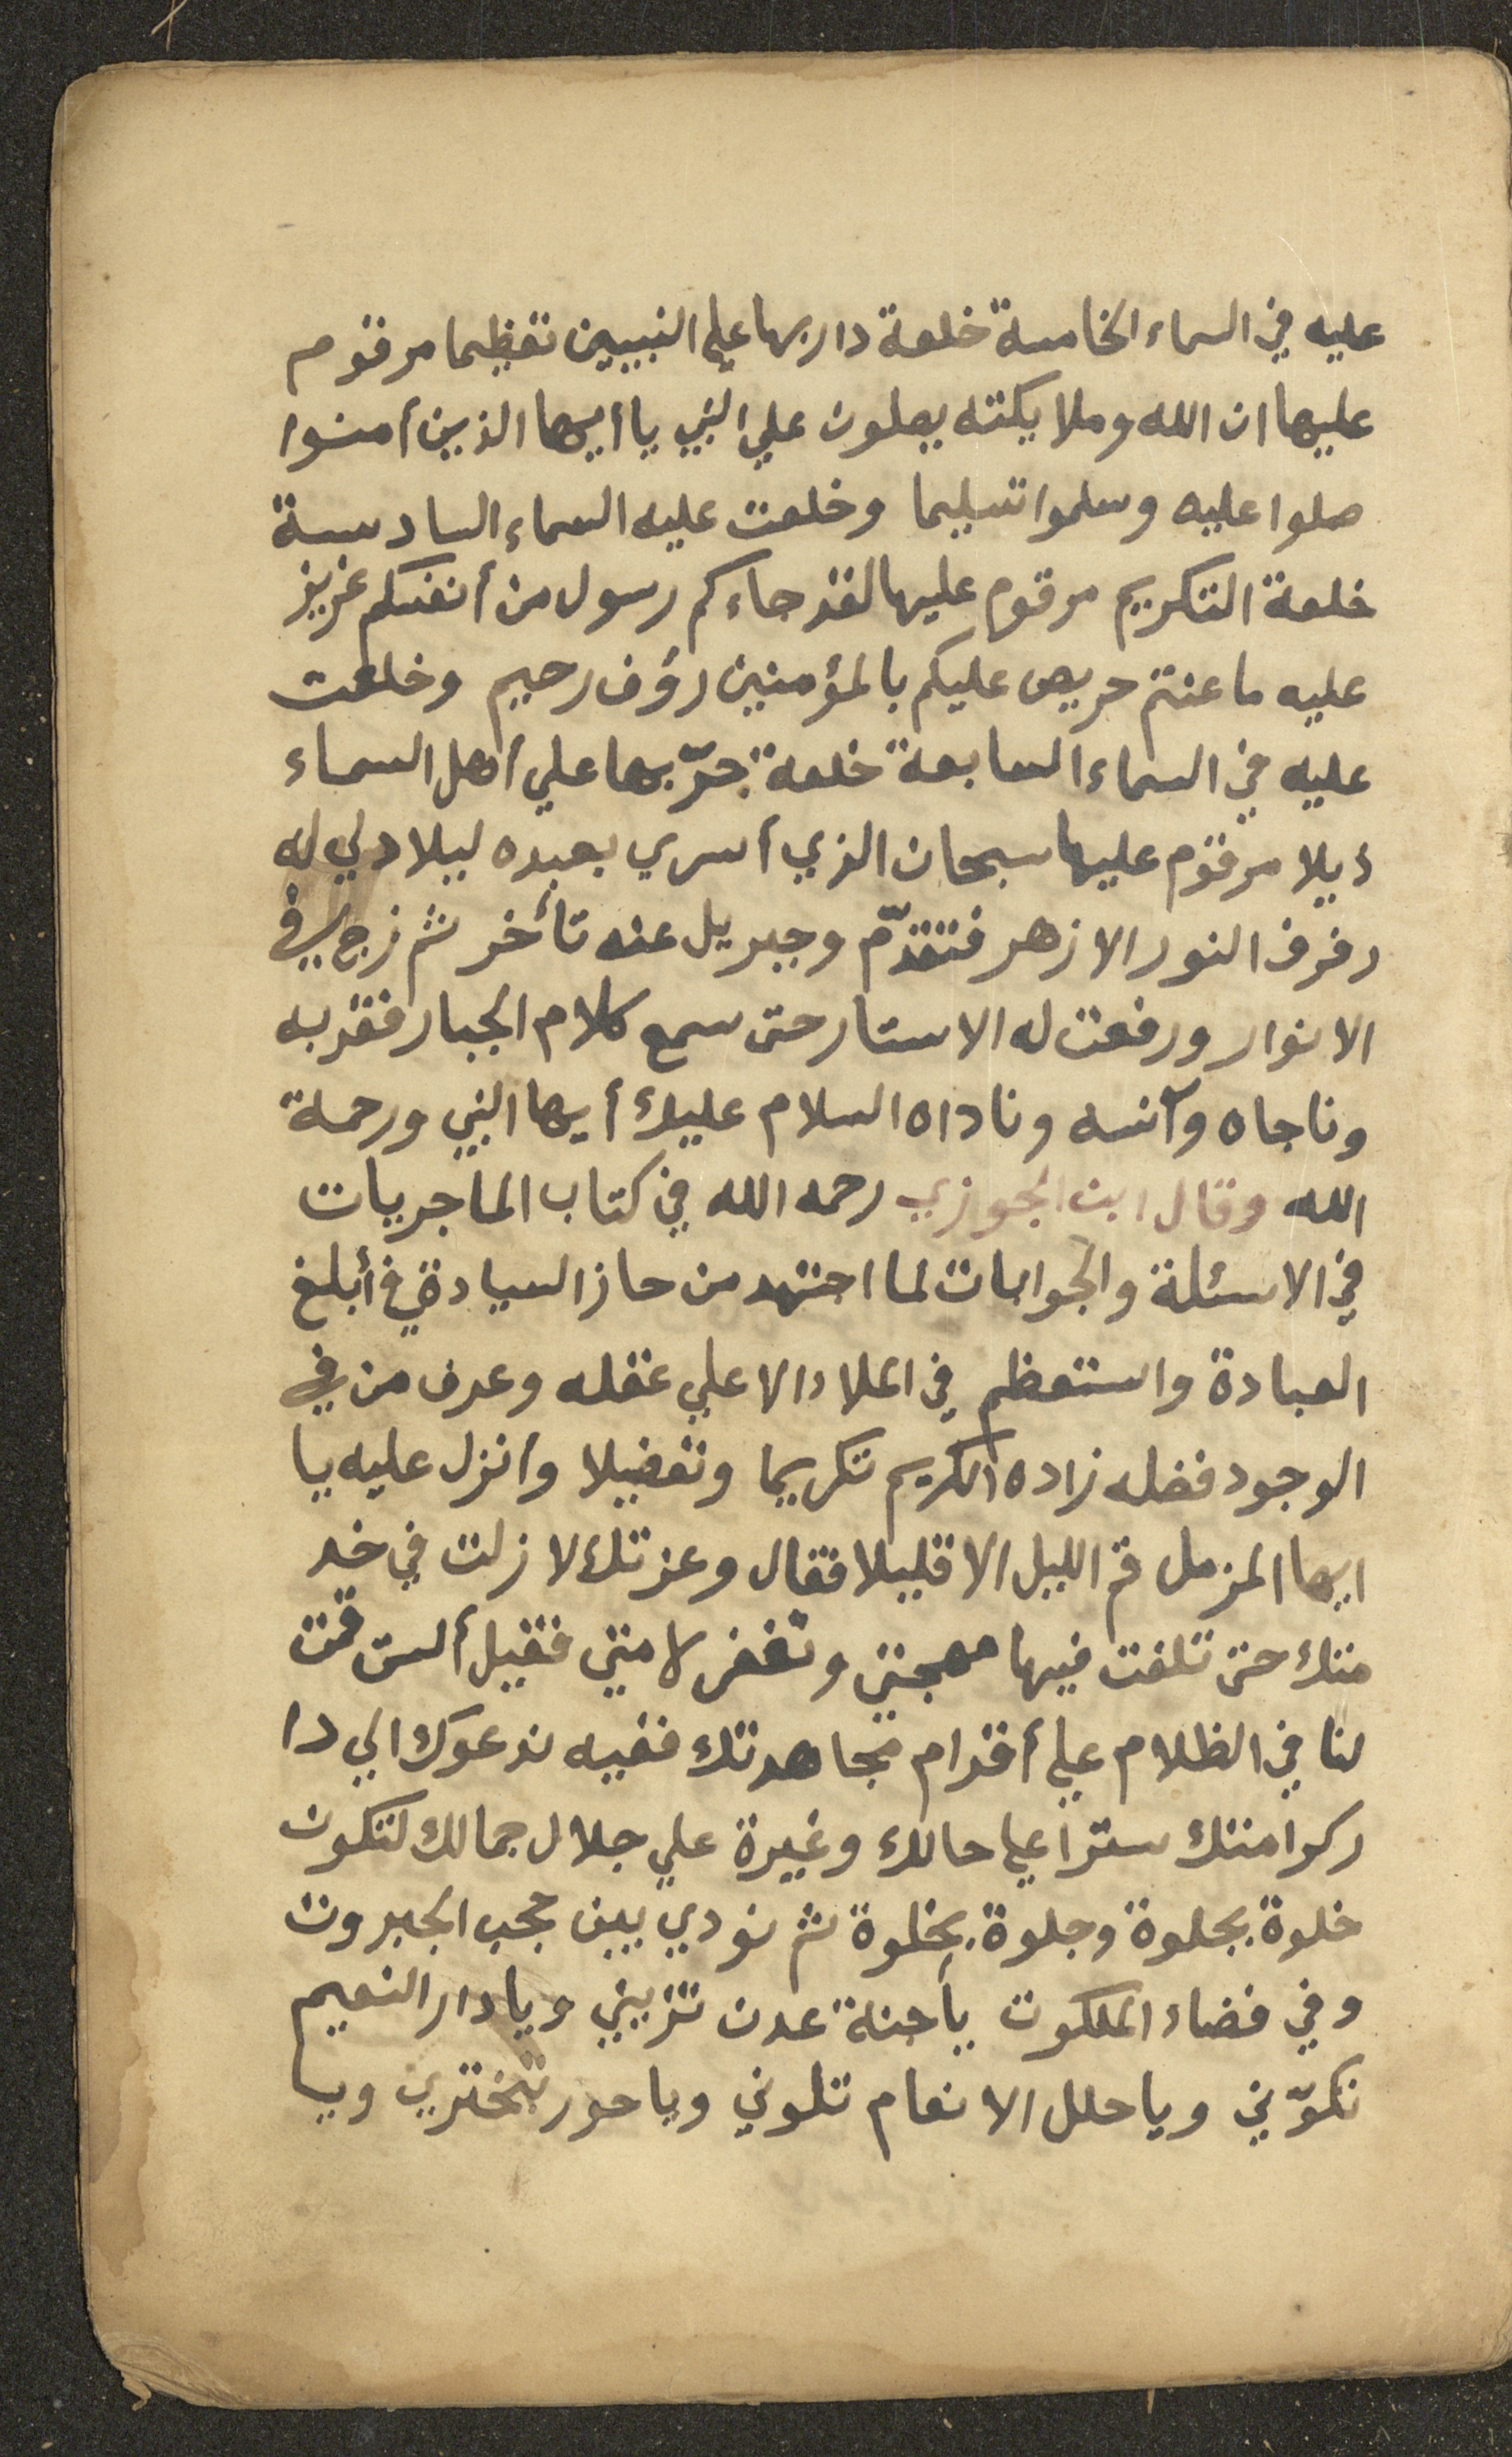 عليه في السماء الخامسة خلعة دار بها علي النبيين تعظيما مرقوم
عليها ان الله وملايكته يصلون علي النبي يا أيها الذين أمنوا
صلوا عليه وسلموا تسليما وخلعت عليه السماء السادسة
خلعة التكريم مرقوم عليها لقد جاءكم رسول من أنفسكم عزيز
عليه ما عنتم حريص عليكم بالمؤمنين رؤف رحيم وخلعت
عليه في السماء السابعة خلعة جرّ بها علي أهل السماء
ذيلا مرقوم عليها سبحان الذي أسري بعبده ليلا دلي له
رفرف النور الازهر فتقدّم وجبريل عنه تأخر ثم زج في
الانوار ورفعت له الاستار حتى سمع كلام الجبار فقربه
وناجاه وآنسه وناداه السلام عليك أيها النبي ورحمة
الله وقال ابن الجوزي رحمه الله في كتاب الماجريات
في الاسئلة والجوابات لما اجتهد من حاز السيادة في أبلغ
العبادة واستعظم في الملاء الاعلي عقله وعرف من في
الوجود فضله زاده الكريم تكريما وتفضيلا وأنزل عليه يا
ايها المزمل قم الليل الا قليلا فقال وعزتك لا زلت في خد
متك حتى تلفت فيها مهجتي وتغفر لامتي فقيل ألست قمت
لنا في الظلام علي أقدام مجاهدتك ففيه ندعوك الي دا
ركرامتك سترا علي حالك وغيرة علي جلال جمالك لتكون
خلوة بجلوة وجلوة بخلوة ثم نودي بين حجب الجبروت
وفي فضاء الملكوت يا جنة عدن تزيني ويا دار النعيم
تكوّني ويا حلل الانعام تلوني ويا حور تبختري ويا